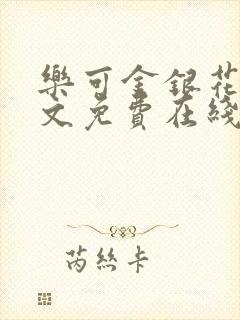 樂可金銀花
文免費在綫
芮絲卡